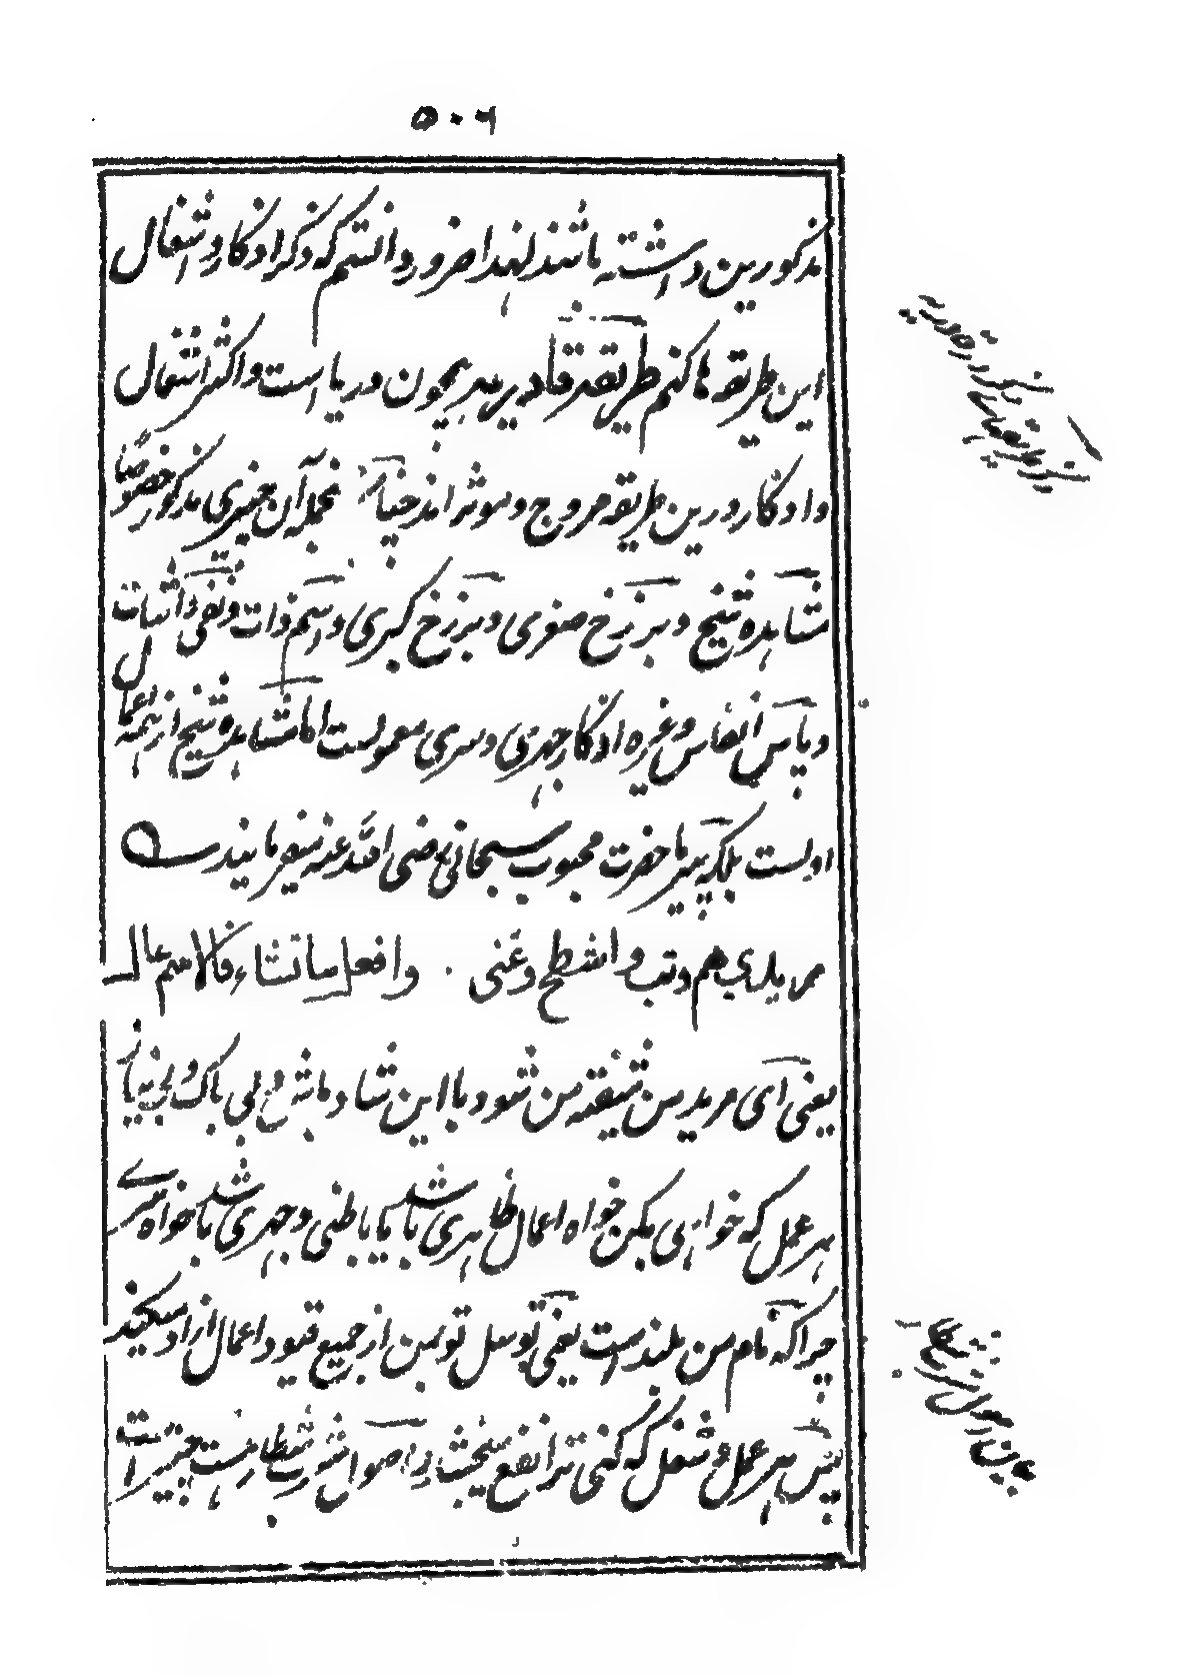 ۵۰۶
مذکورین داشته باشند لهذا ضرور دانستم که ذکر اذکار و اشغال
این طریقه ها کنم طریقه قادریه همچون دریا است و اکثر اشغال
و اذکار درین طریقه مروج و موثر اند چنانکه نجمله آن چیزی مذکور خصوصًا
مشاهده شیخ و برزخ صغری و برزخ کبری و اسم ذات و نفی و اثبات
و پاس انفاس و غیره اذکار جهری و سری معمولست اما مشاهده شیخ از همه اعمال
اولست بلکه پیر ما حضرت محبوب سبحانی رضی الله عنه میفرمایند
مریدی هم وتب واشطح وغنی وافعل ما تشاء فالاسم عال
یعنی آی مرید من شیفته من شود با این شاد باش و بی باک و بی نیاز
هر عمل که خواهی بکن خواه اعمال ظاهری باشد یا باطنی و جهری باشد خواه سری
چرا که نام من بلند است یعنی توسل تو بمن از جمیع قیود اعمال ازاد میکند
پس هر عمل و شغل که کنی ترا نفع بخشد اصول شرب شطار بست چیز است